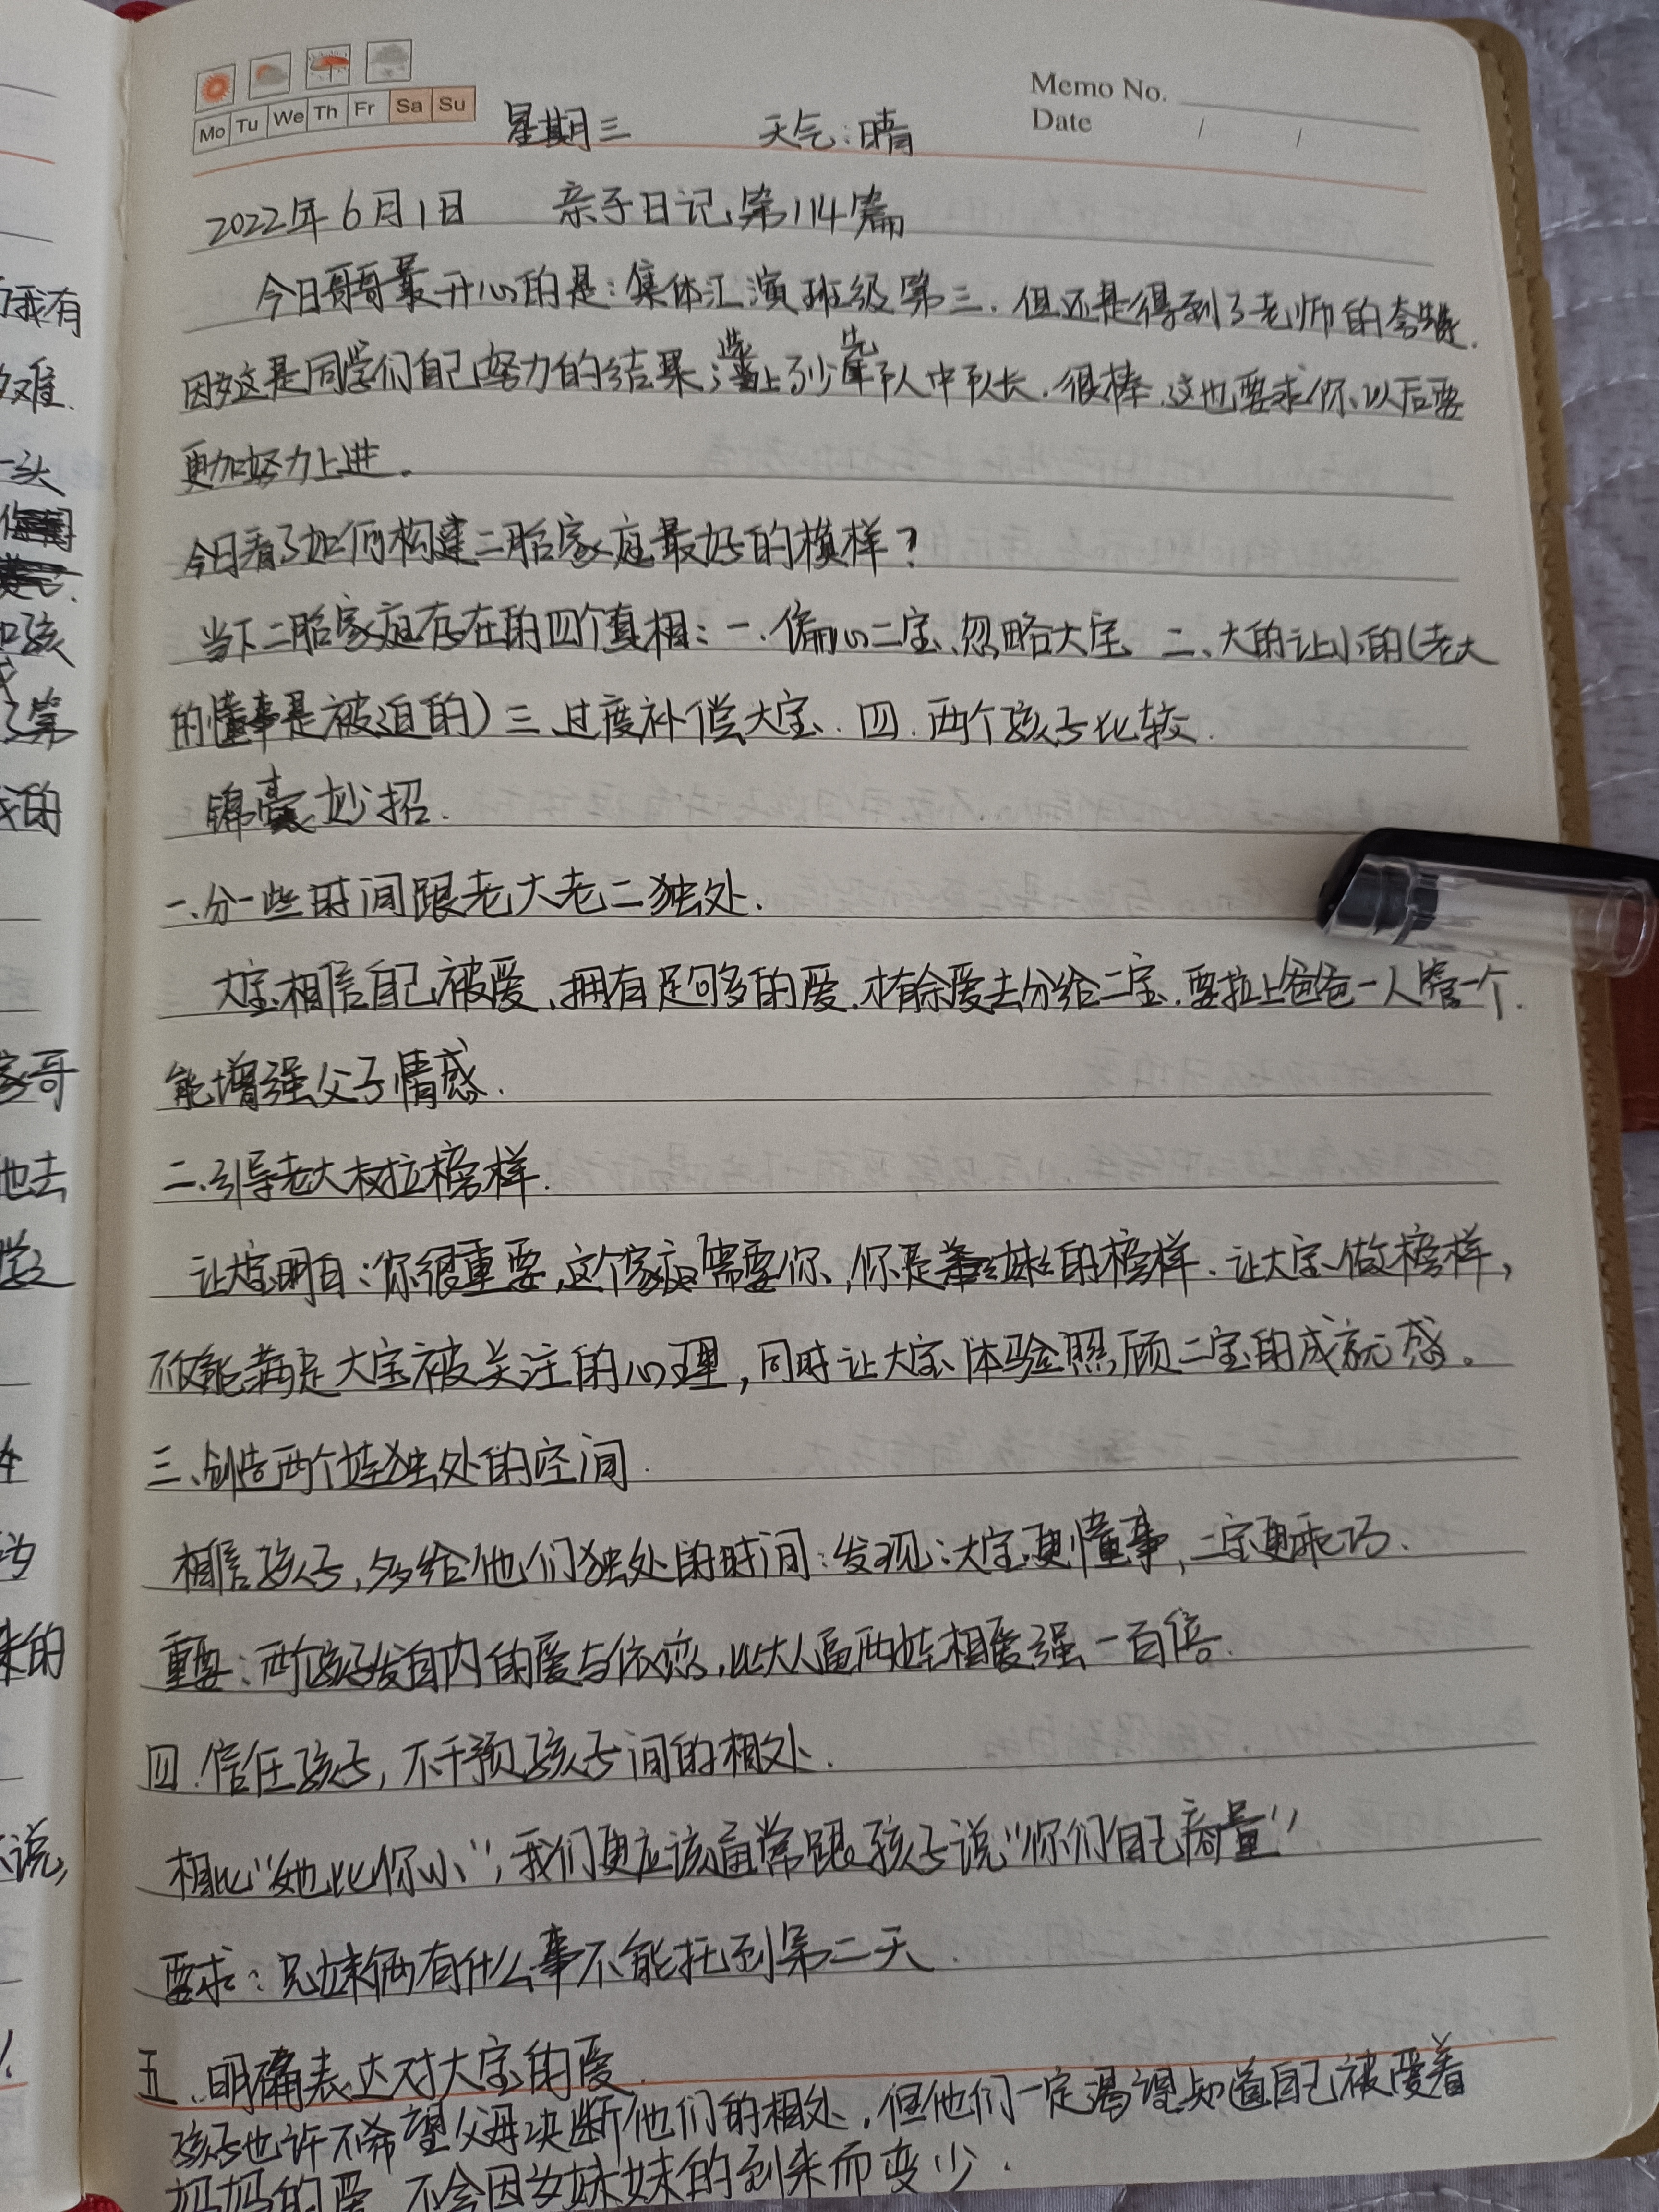 Mo Tu We Th Fr Sa Su
Memo No.
Date / /
星期三 天气:晴
2022年6月1日 亲子日记第114篇
今日哥哥最开心的是:集体汇演班级第三.但还是得到了老师的夸赞.
因为这是同学们自己努力的结果;选上了少先队中队长.很棒.这也要求你以后要
更加努力上进.
今日看了如何构建二胎家庭最好的模样?
当下二胎家庭存在的四个真相:一.偏心二宝、忽略大宝 二、大的让小的(老大
的懂事是被迫的)三、过度补偿大宝.四.两个孩子比较.
锦囊妙招.
一、分一些时间跟老大老二独处.
大宝相信自己被爱、拥有足够多的爱.才有余爱去分给二宝.要拉上爸爸一人管一个.
能增强父子情感.
二、引导老大树拉榜样.
让大宝明白:你很重要,这个家庭需要你,你是妹妹的榜样.让大宝做榜样,
不仅能满足大宝被关注的心理,同时让大宝体验照顾二宝的成就感。
三、创造两个娃独处的空间.
相信孩子,多给他们独处的时间:发现:大宝更懂事,二宝更乖巧.
重要:两个孩子发自内的爱与依恋,比大人逼两娃相爱强一百倍.
四.信任孩子,不干预孩子间的相处.
相比"她比你小",我们更应该通常跟孩子说"你们自己商量"
要求:兄妹俩有什么事不能托到第二天.
五、明确表达对大宝的爱.
孩子也许不希望父母决断他们的相处,但他们一定渴望知道自己被爱着
妈妈的爱 不会因为妹妹的到来而变少.